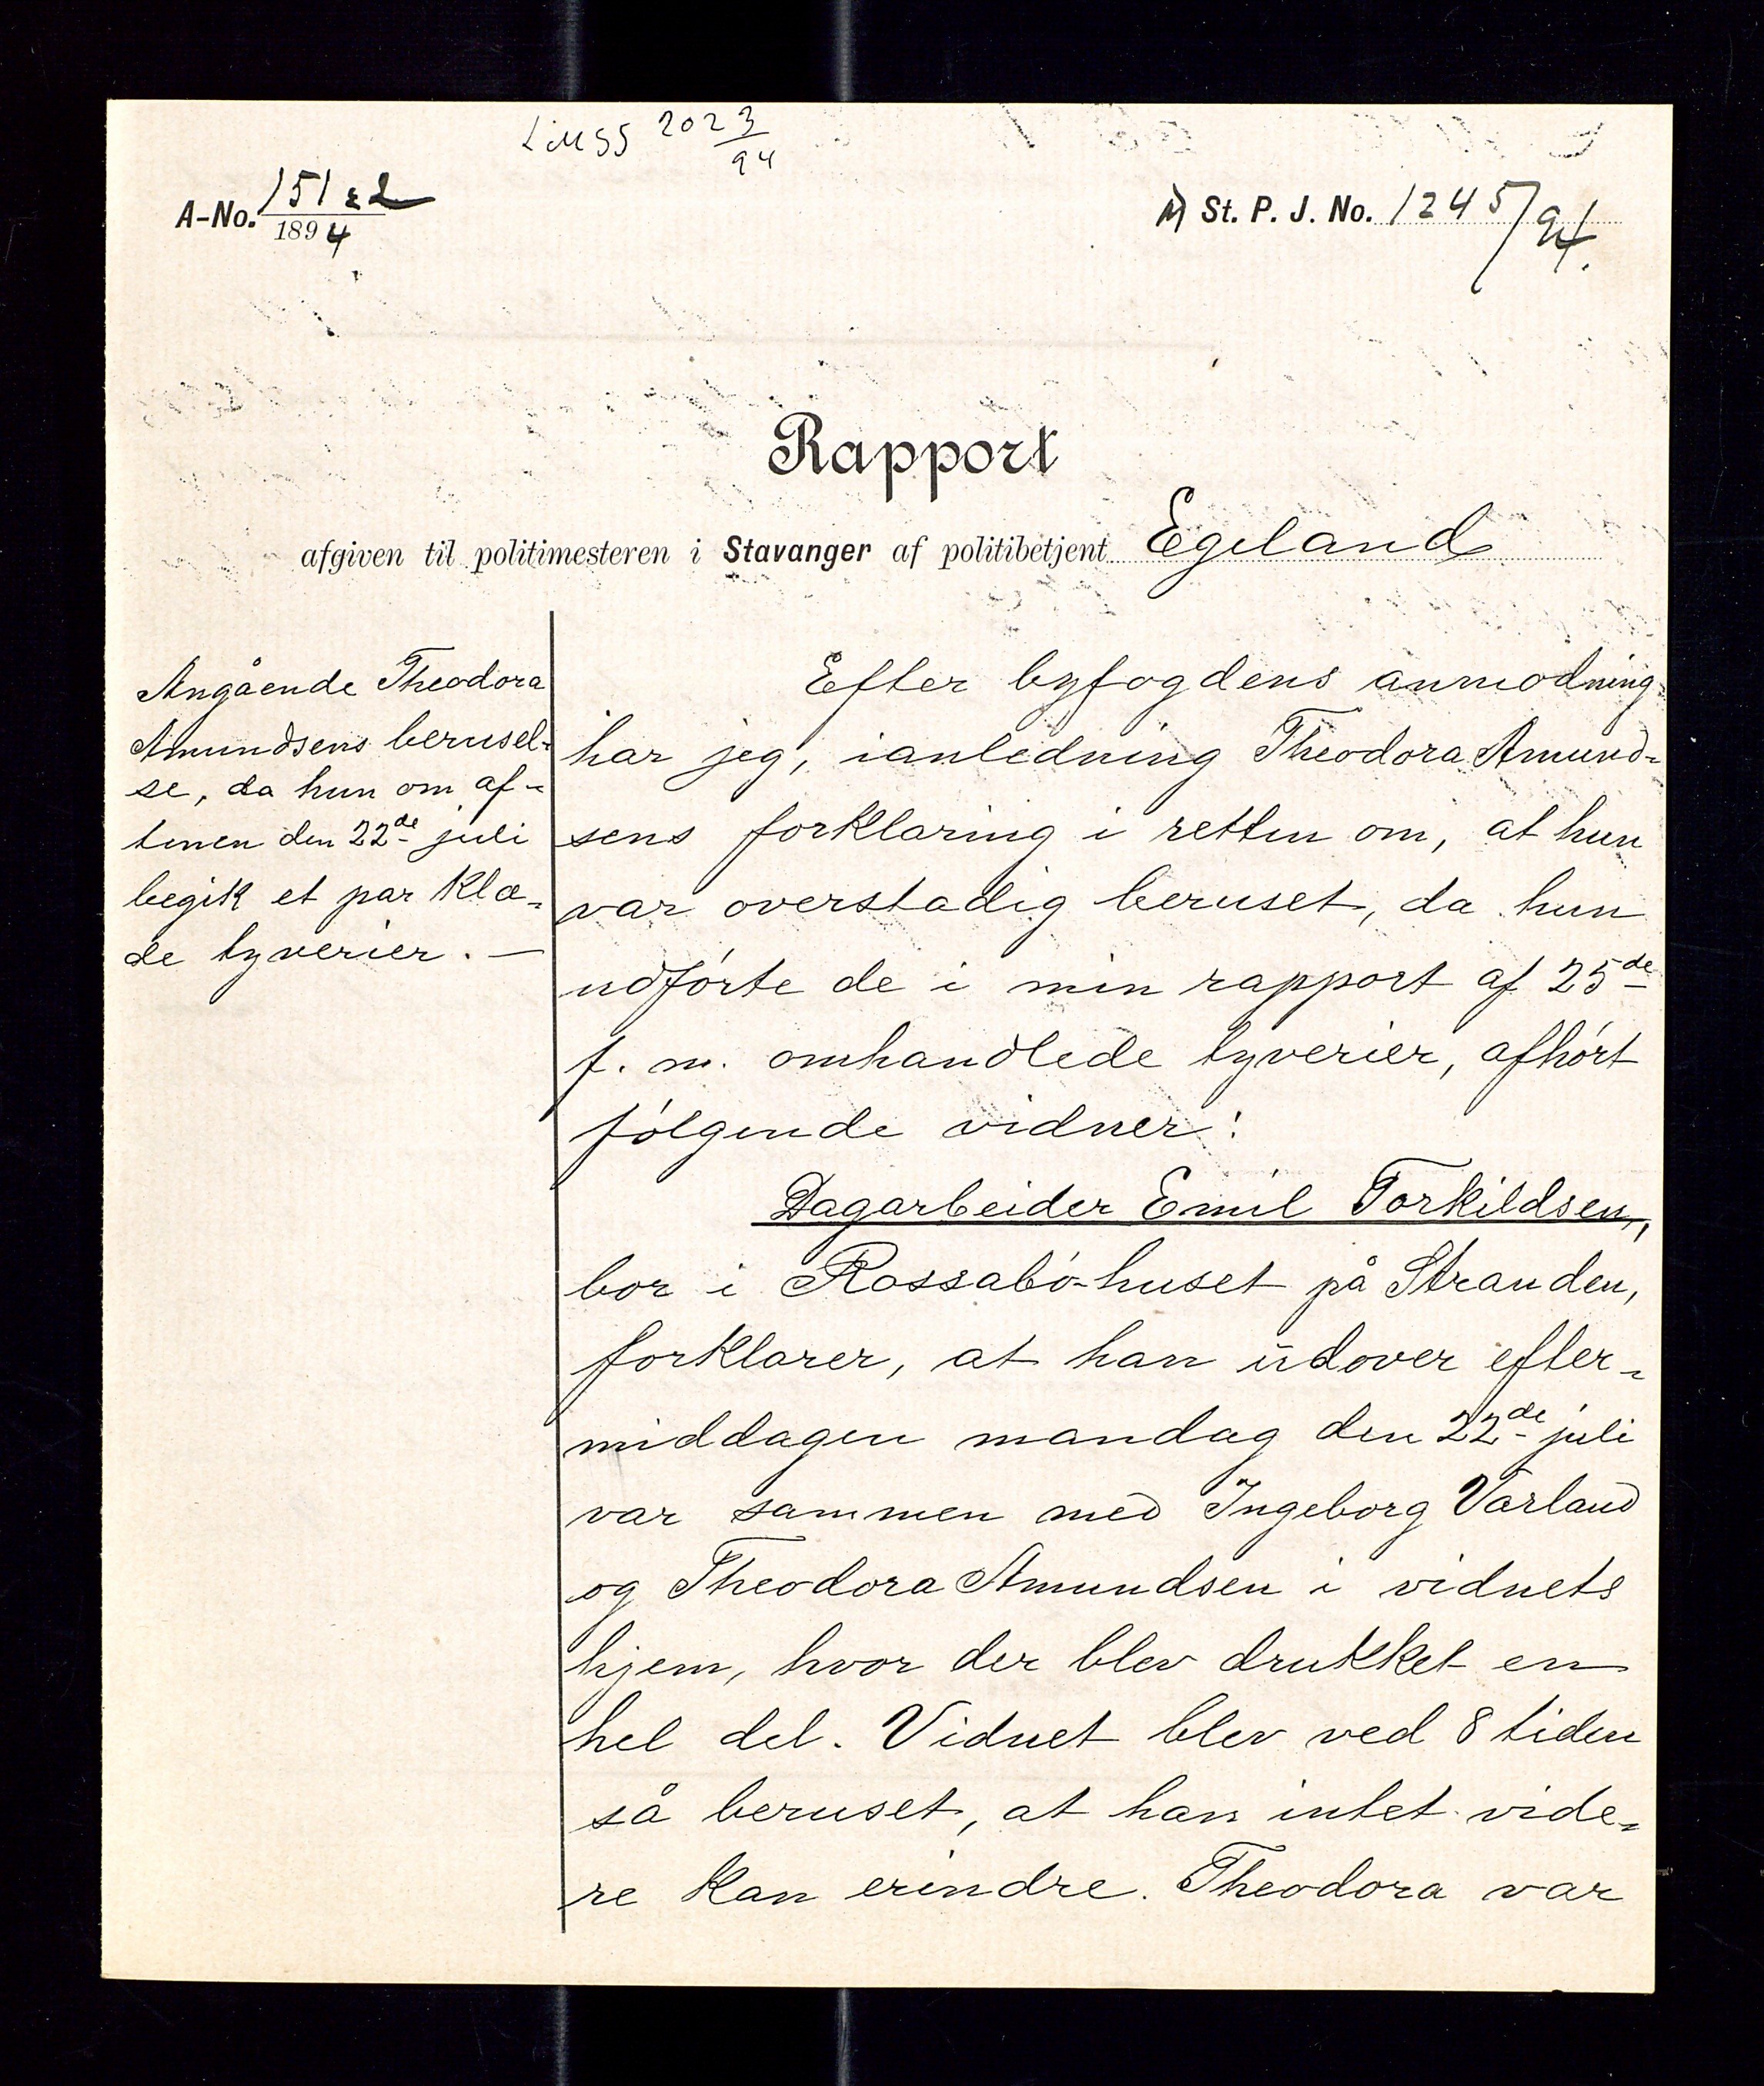 2023
94
A-No. 151
1894
St. P. J. No. 1245/94.
Rapport
afgiven til politimesteren i Stavanger af politibetjent Egeland
Angående Theodora
Amundsens berusel-
se, da hun om af-
tenen den 22de juli
begik et par klæ-
de tyverier. —
Efter byfogdens anmodning
har jeg, ianledning Theodora Amund-
sens forklaring i retten om, at hun
var overstadig beruset, da hun
udførte de i min rapport af 25de
f. m. omhandlede tyverier, afhørt
følgende vidner:
Dagarbeider Emil Torkildsen,
bor i Rossabø-huset på Stranden,
forklarer, at han udover efter-
middagen mandag den 22de juli
var sammen med Ingeborg Varland
og Theodora Amundsen i vidnets
hjem, hvor der blev drukket en
hel del. Vidnet blev ved 8 tiden
så beruset, at han intet vide-
re kan erindre. Theodora var